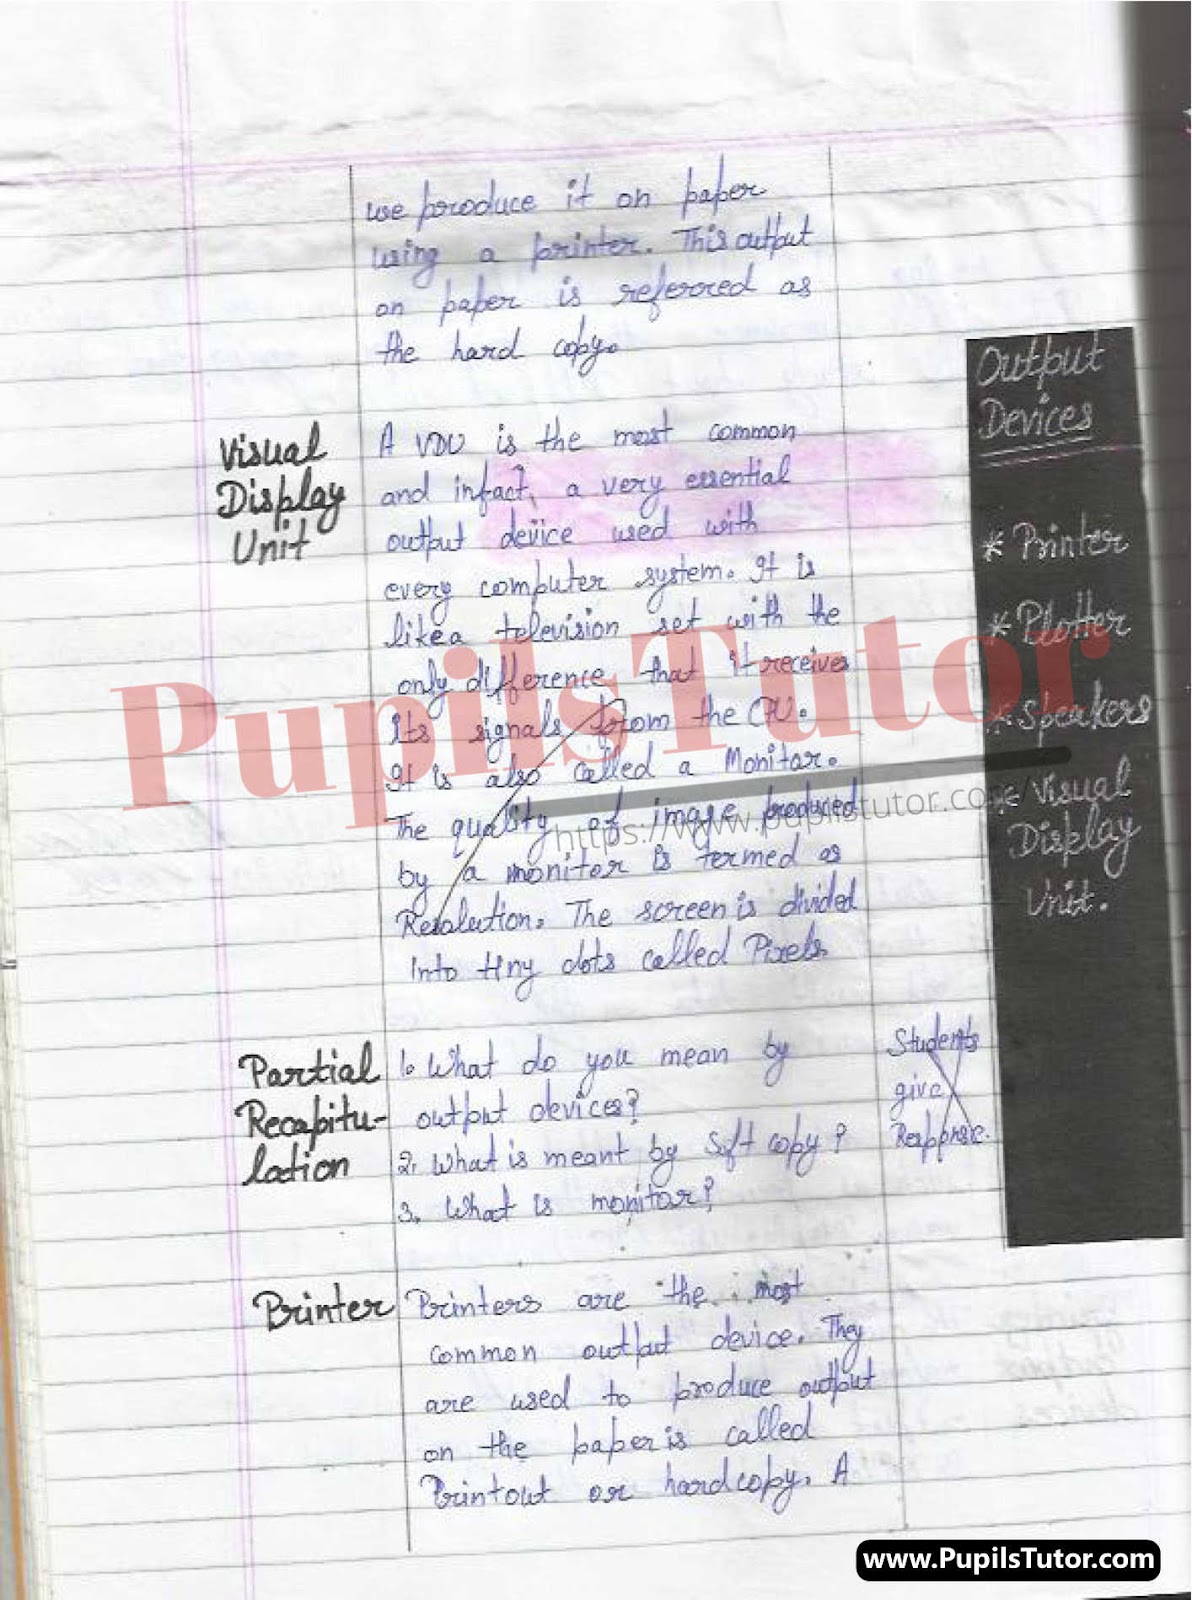 we produce it on paper
using a printer. This output
on paper is referred as
the hard copy.
Visual
Display
Unit
A VDU is the most common
and infact, a very essential
output device used with
every computer system. It is
like a television set with the
only difference that it receives
its signals from the CPU.
It is also called a Monitor.
The quality of image produced
by a monitor is termed as
Resolution. The screen is divided
into tiny dots called Pixels.
Output
Devices
* Printer
* Plotter
* Speakers
* Visual
Display
Unit.
Partial
Recapitu-
lation
1. What do you mean by
output devices?
2. What is meant by Soft copy?
3. What is monitor?
Students
give
Printer
Printers are the most
common output device. They
are used to produce output
on the paper is called
Printout or hardcopy. A
PupilsTutor
https://www.pupilstutor.com/
www.PupilsTutor.com